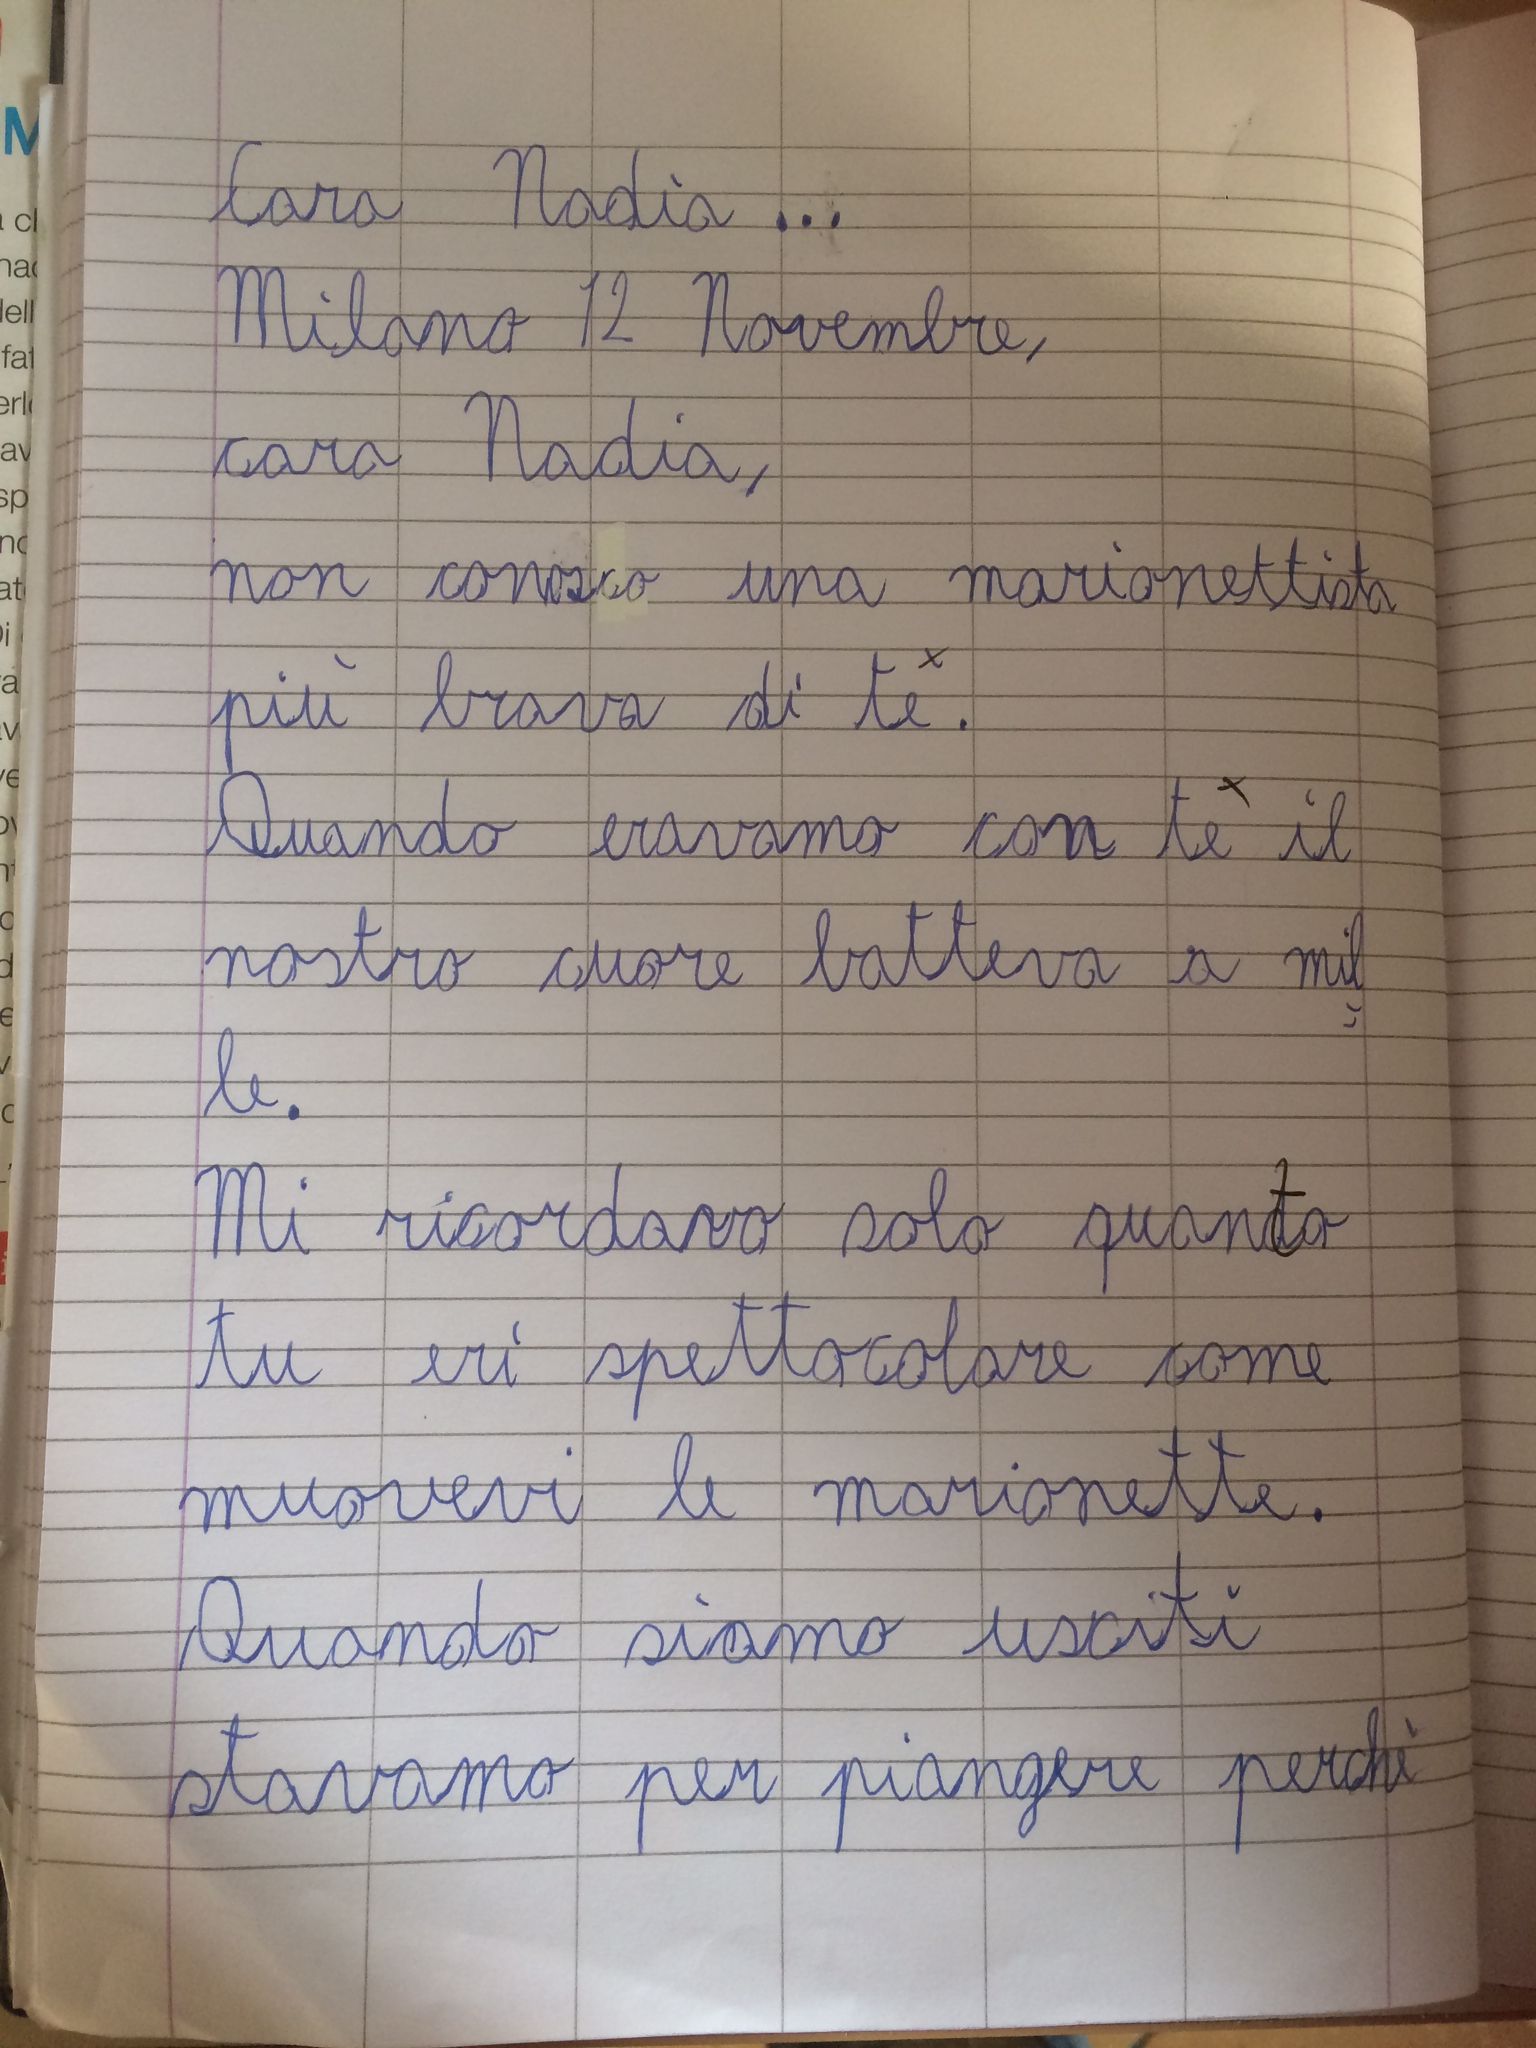 Cara Nadia...
Milano 12 Novembre,
cara Nadia,
non conosco una marionettista
più brava di tè.
Quando eravamo con tè il
nostro cuore batteva a mil
le.
Mi ricordavo solo quanto
tu eri spettacolare come
muovevi le marionette.
Quando siamo usciti
stavamo per piangere perchè